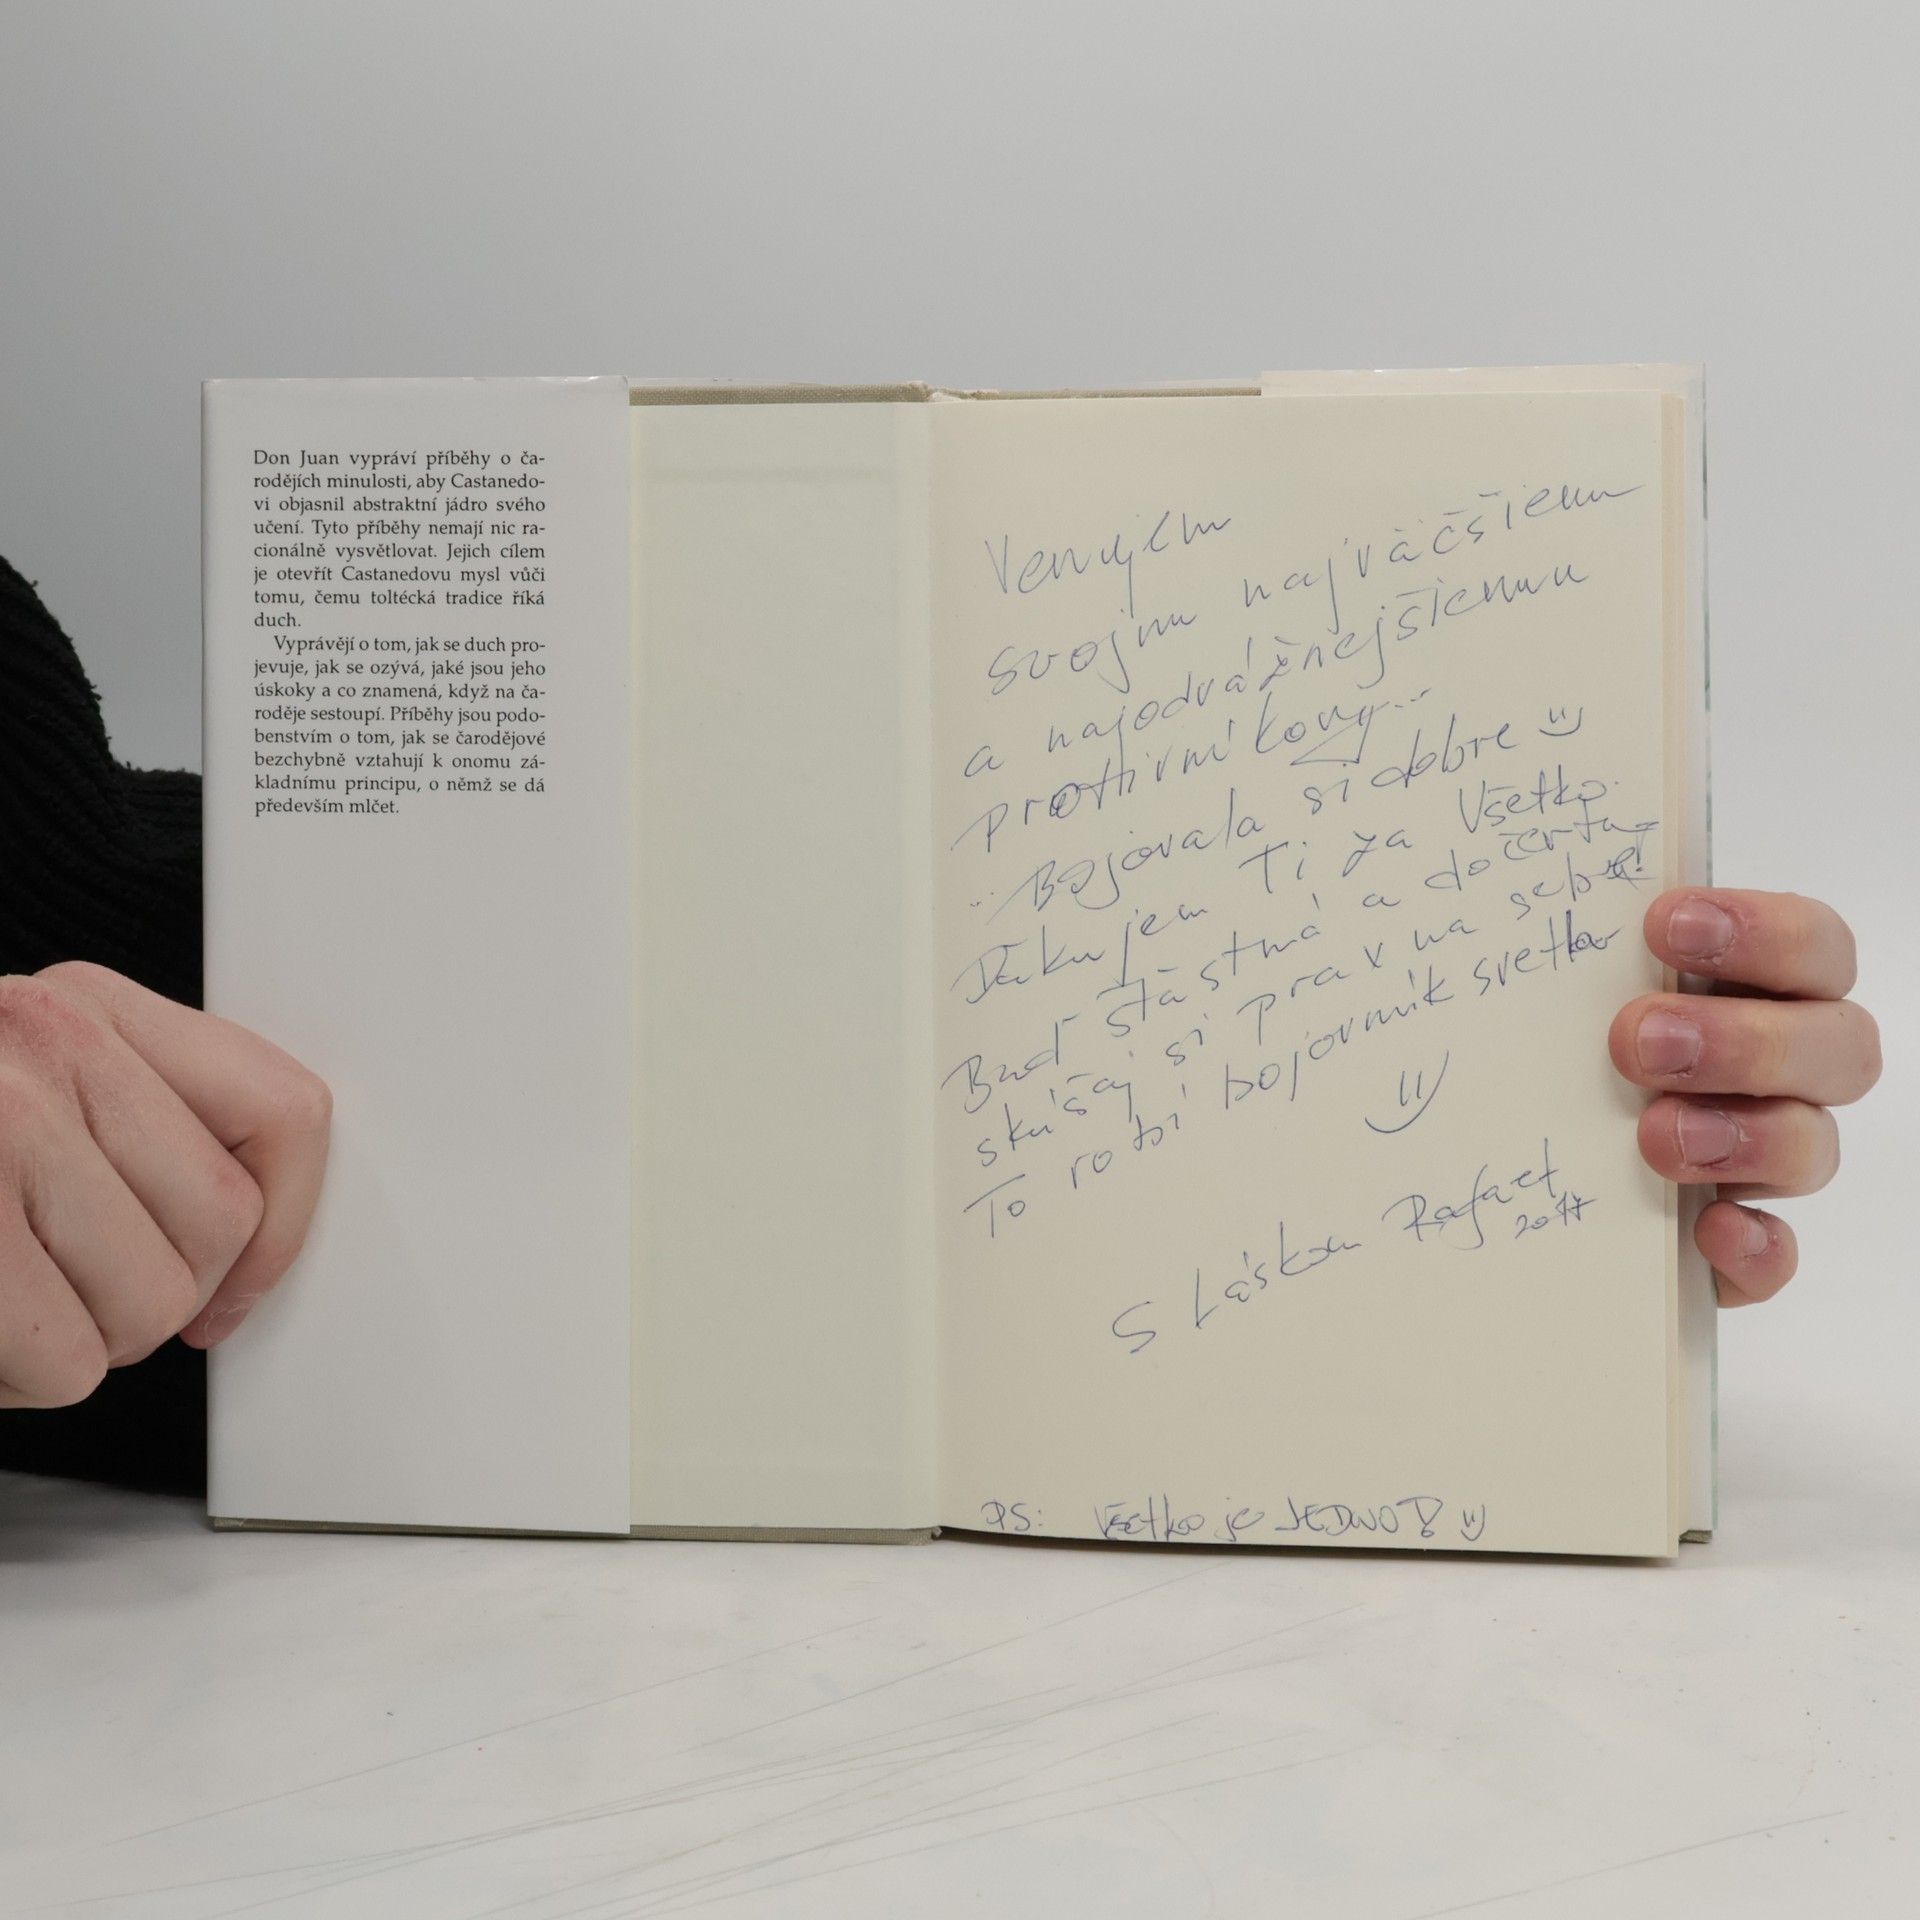 Don Juan vypráví příběhy o ča-
rodějích minulosti, aby Castanedo-
vi objasnil abstraktní jádro svého
učení. Tyto příběhy nemají nic ra-
cionálně vysvětlovat. Jejich cílem
je otevřít Castanedovu mysl vůči
tomu, čemu toltécká tradice říká
duch.
Vyprávějí o tom, jak se duch pro-
jevuje, jak se ozývá, jaké jsou jeho
úskoky a co znamená, když na ča-
roděje sestoupí. Příběhy jsou podo-
benstvím o tom, jak se čarodějové
bezchybně vztahují k onomu zá-
kladnímu principu, o němž se dá
především mlčet.
Venujem
svojmu najväčšiemu
a najodvážnejšiemu
protivníkovy...
..Bojovala si dobre
Ďakujem Ti za Všetko.
Buď šťastná a dočerta
skúšaj si prax na sebe!
To robí bojovník svetla
S Láskou Rafael
2017
PS: Všetko je JEDNO!